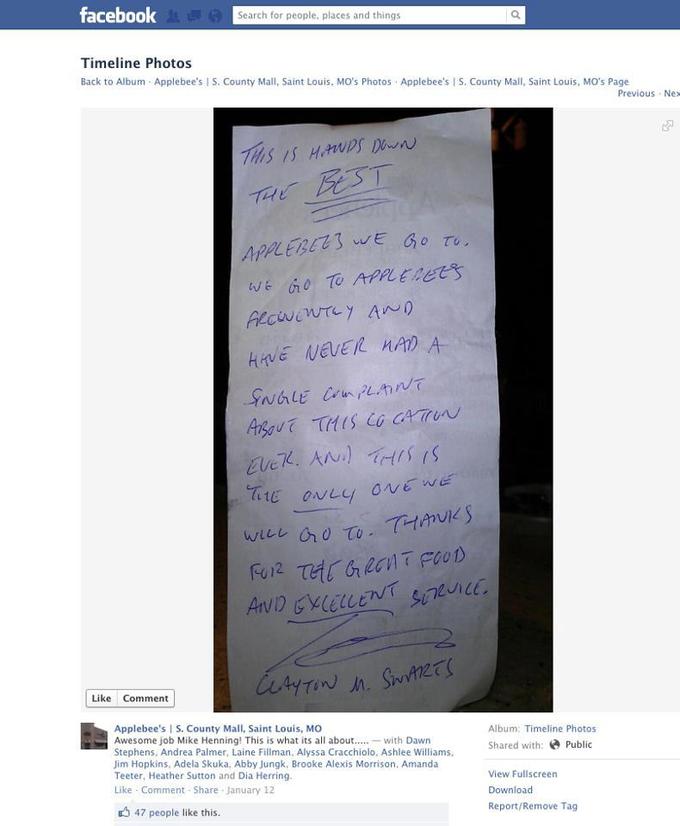 facebook
Search for people, places and things
Timeline Photos
Back to Album · Applebee's | S. County Mall, Saint Louis, MO's Photos · Applebee's | S. County Mall, Saint Louis, MO's Page
Previous · Nex
THIS IS HANDS DOWN
THE BEST
APPLEBEES WE GO TO.
WE GO TO APPLEBEES
FREQUENTLY AND
HAVE NEVER HAD A
SINGLE COMPLAINT
ABOUT THIS LOCATION
EVER. AND THIS IS
THE ONLY ONE WE
WILL GO TO. THANKS
FOR THE GREAT FOOD
AND EXCELLENT SERVICE.
CLAYTON M. SWARTS
Like Comment
Applebee's | S. County Mall, Saint Louis, MO
Awesome job Mike Henning! This is what its all about..... — with Dawn
Stephens, Andrea Palmer, Laine Fillman, Alyssa Cracchiolo, Ashlee Williams,
Jim Hopkins, Adela Skuka, Abby Jungk, Brooke Alexis Morrison, Amanda
Teeter, Heather Sutton and Dia Herring.
Like · Comment · Share · January 12
47 people like this.
Album: Timeline Photos
Shared with: Public
View Fullscreen
Download
Report/Remove Tag